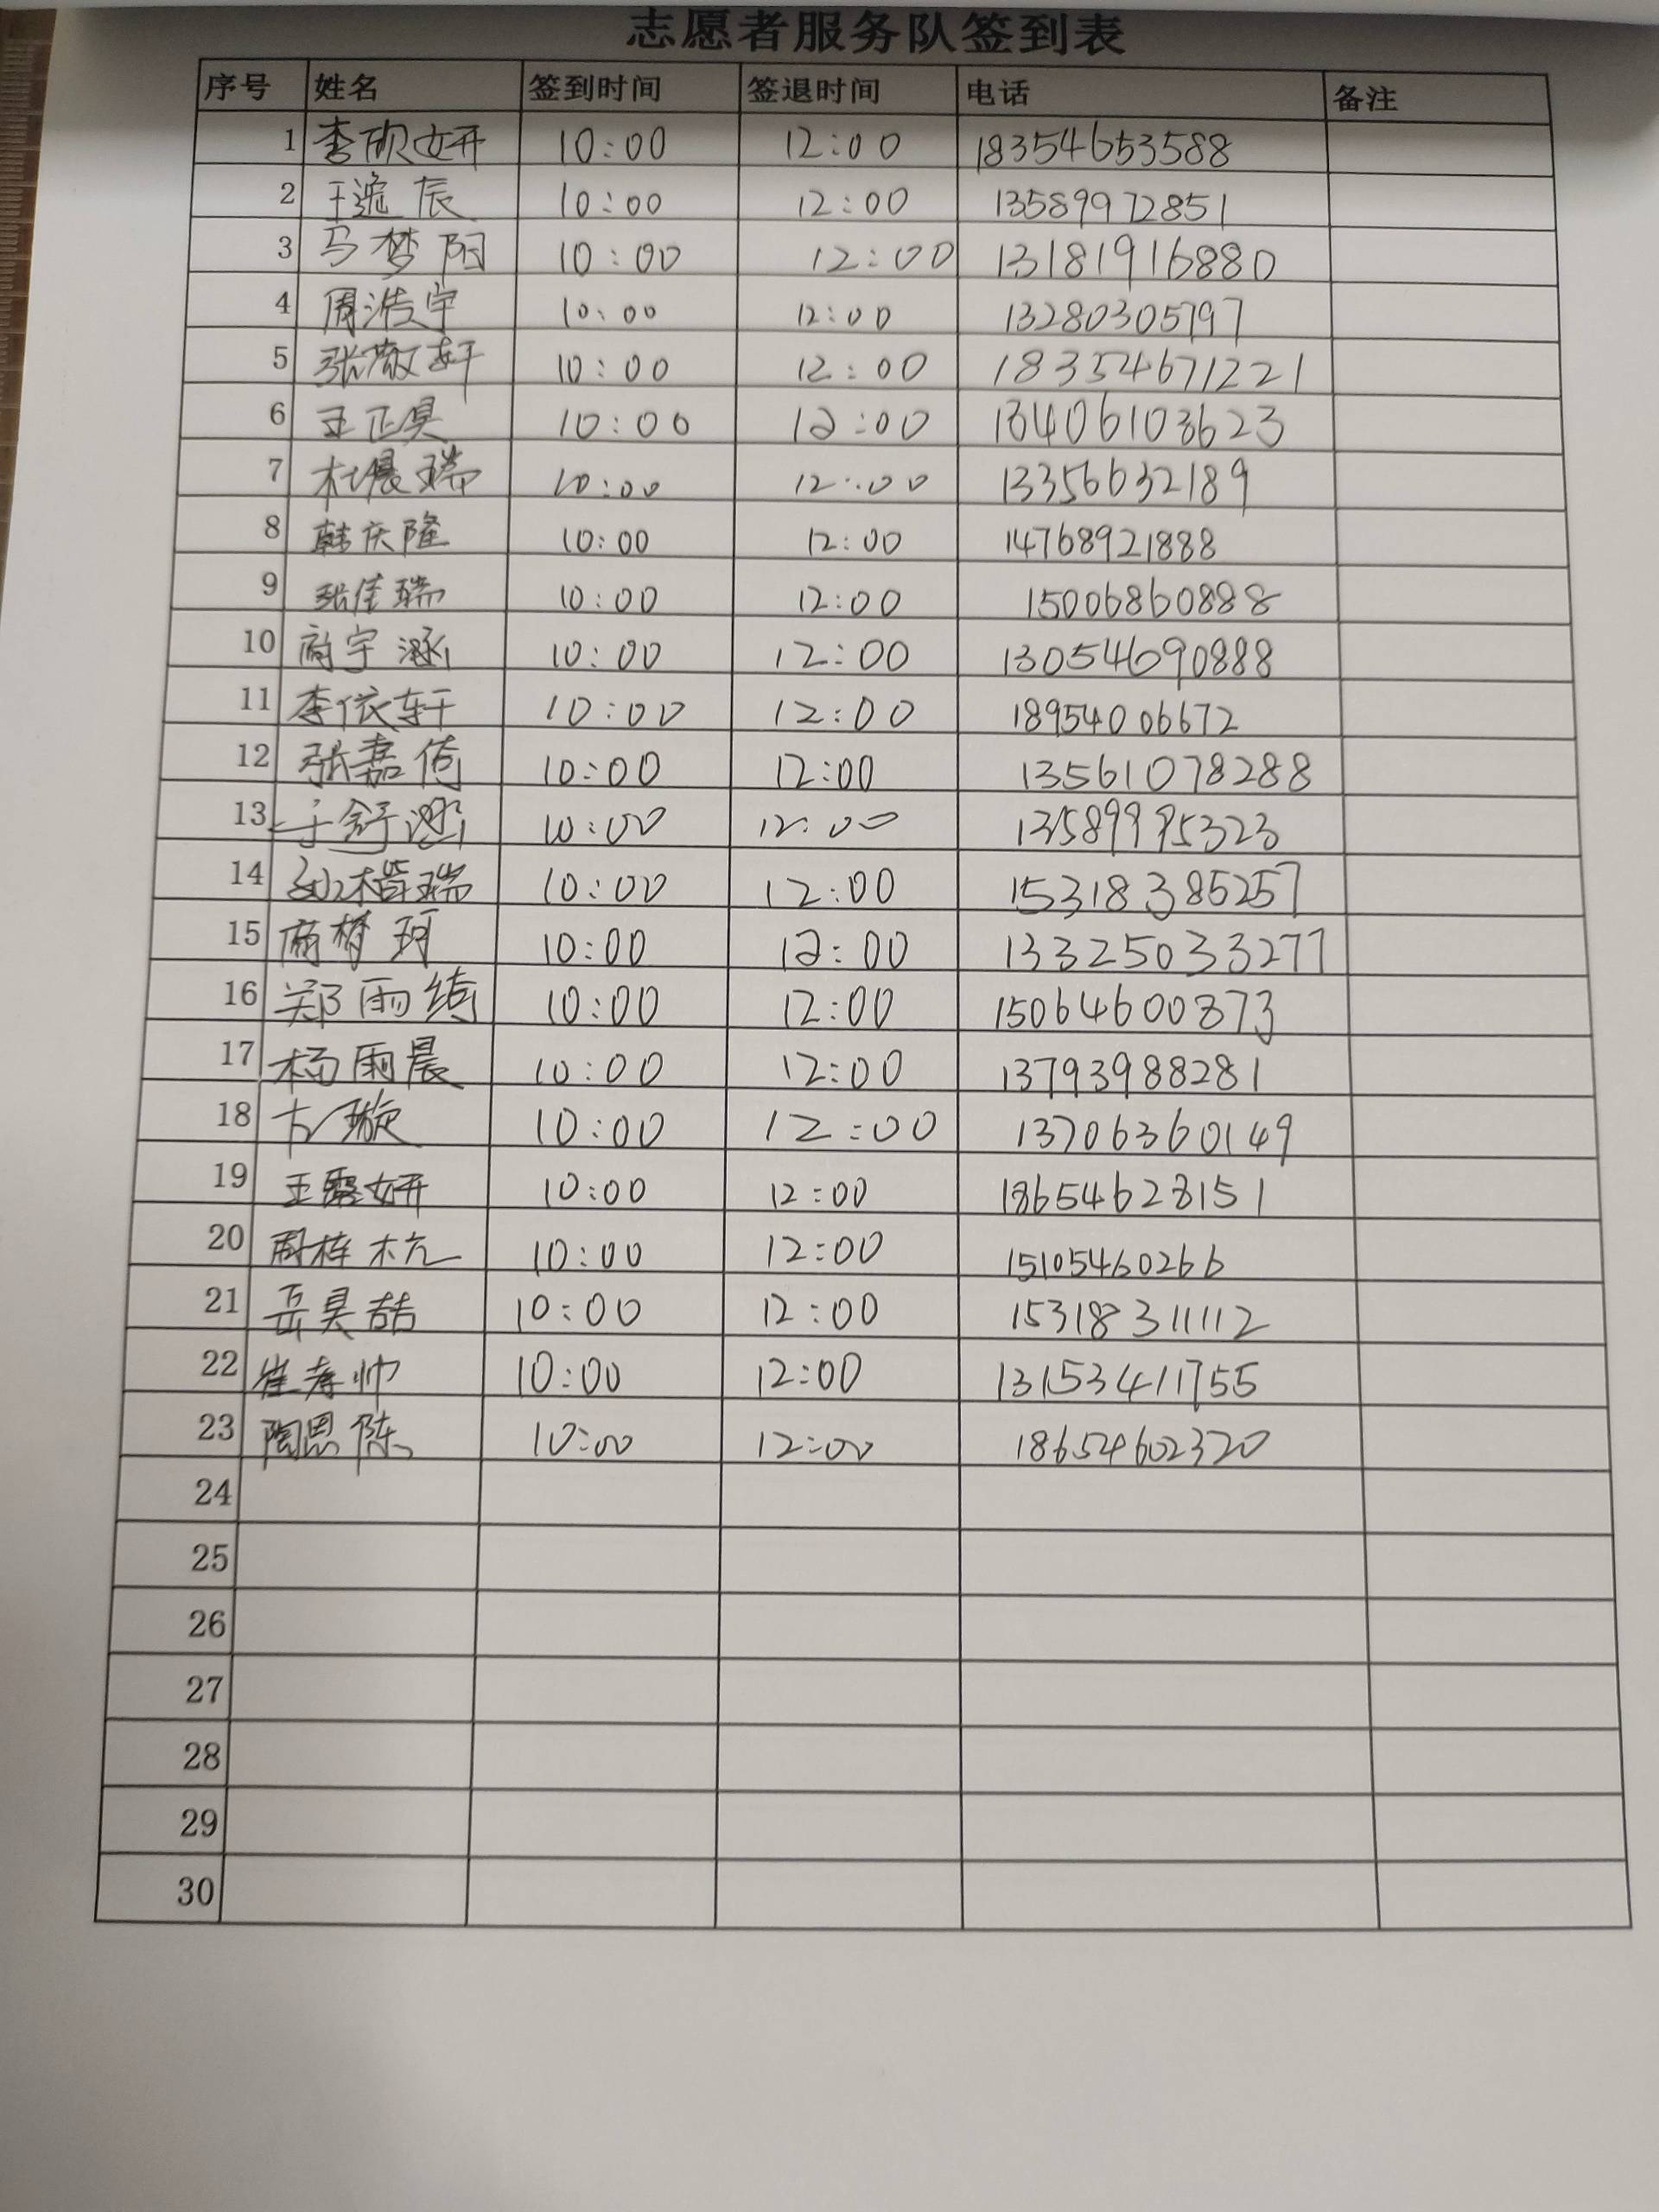 志愿者服务队签到表
序号 姓名 签到时间 签退时间 电话 备注
1 李欣妍 10:00 12:00 18354653588
2 王逸辰 10:00 12:00 13589972851
3 马梦阳 10:00 12:00 13181916880
4 周浩宇 10:00 12:00 13280305797
5 张敬轩 10:00 12:00 18354671221
6 王正昊 10:00 12:00 13406103623
7 杜晨瑞 10:00 12:00 13356632189
8 韩庆隆 10:00 12:00 14768921888
9 张佳瑞 10:00 12:00 15006860888
10 商宇涵 10:00 12:00 13054690888
11 李依轩 10:00 12:00 18954006672
12 张嘉倚 10:00 12:00 13561078288
13 于舒涵 10:00 12:00 13589995323
14 孙楷瑞 10:00 12:00 15318385257
15 商梦珂 10:00 12:00 13325033277
16 郑雨绮 10:00 12:00 15064600373
17 杨雨晨 10:00 12:00 13793988281
18 璇 10:00 12:00 13706360149
19 王露妍 10:00 12:00 18654628151
20 周梓杭 10:00 12:00 15105460266
21 岳昊喆 10:00 12:00 15318311112
22 崔孝帅 10:00 12:00 13153411755
23 陶思陈 10:00 12:00 18654602320
24
25
26
27
28
29
30